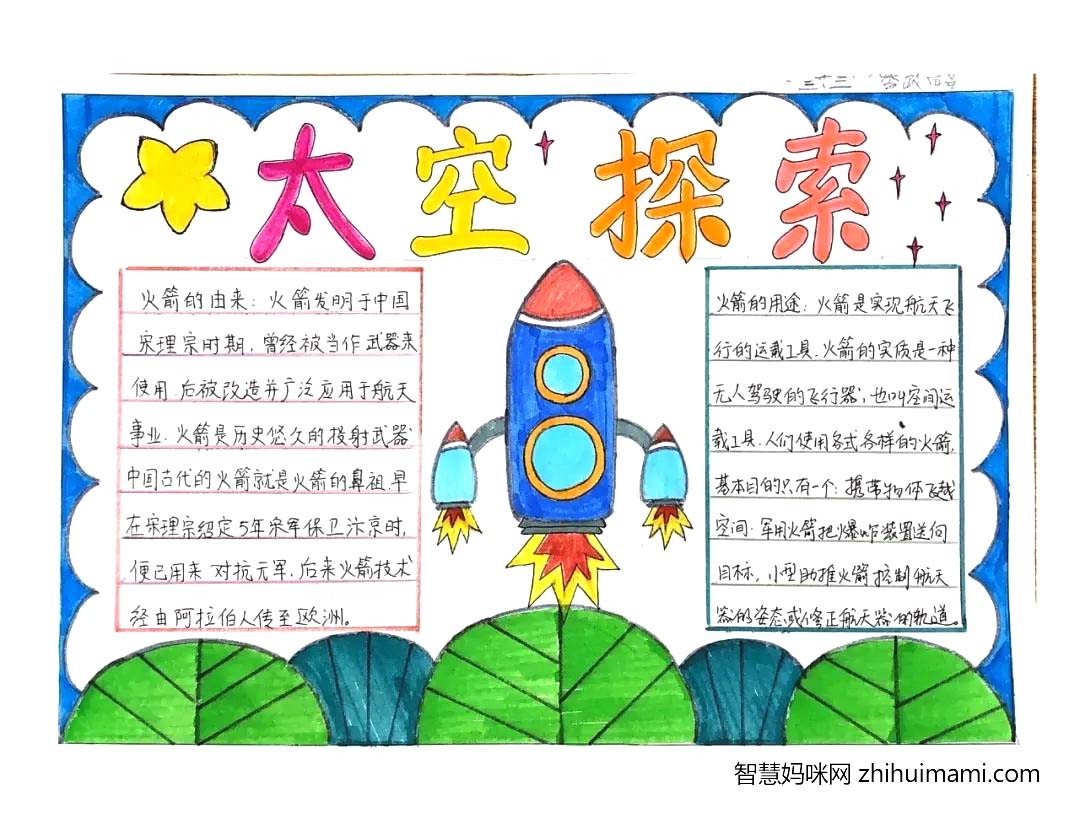 太空探索
火箭的由来：火箭发明于中国
宋理宗时期，曾经被当作武器来
使用，后被改造并广泛应用于航天
事业．火箭是历史悠久的投射武器
中国古代的火箭就是火箭的鼻祖，早
在宋理宗绍定5年宋军保卫汴京时，
便已用来对抗元军，后来火箭技术
经由阿拉伯人传至欧洲。
火箭的用途：火箭是实现航天飞
行的运载工具．火箭的实质是一种
无人驾驶的飞行器，也叫空间运
载工具．人们使用各式各样的火箭，
基本目的只有一个：携带物体飞越
空间．军用火箭把爆炸装置送向
目标，小型助推火箭控制航天
器的姿态或修正航天器的轨道。
智慧妈咪网 zhihuimami.com